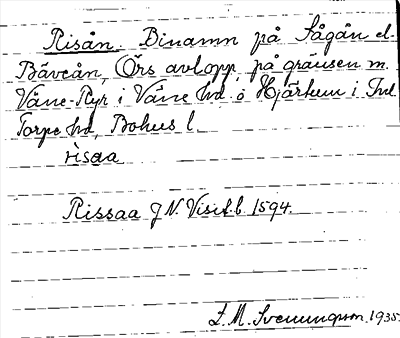 Risån. Binamn på Sågån el.
Bäveån, Örs avlopp, på gränsen m.
Väne-Ryr i Väne hd o Hjärtum i Inl
Torpe hd, Bohus l
rìsaa
Rissaa J N. Visit.b. 1594.
L. M. Svenungsson. 1935.